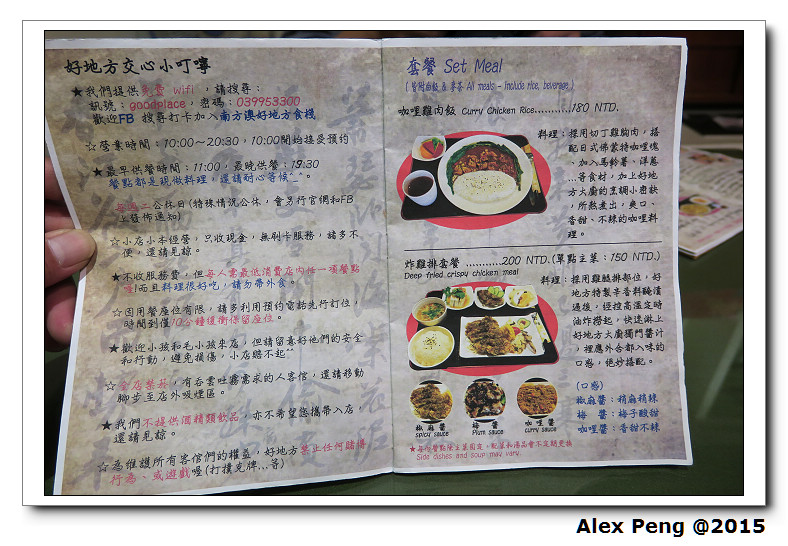 好地方交心小叮嚀
★我們提供免費 wifi ，請搜尋：
訊號：goodplace，密碼：039953300
歡迎FB 搜尋打卡加入南方澳好地方食棧
☆營業時間：10:00～20:30，10:00開始接受預約
★最早供餐時間：11:00，最晚供餐：19:30
餐點都是現做料理，還請耐心等候^^。
每週二公休日(特殊情況公休，會另行官網和FB
上發佈通知)
☆小店小本經營，只收現金，無刷卡服務，諸多不
便，還請見諒。
★不收服務費，但每人需最低消費店內任一項餐點
喔!而且料理很好吃，請勿帶外食。
☆因用餐座位有限，請多利用預約電話先行訂位，
時間到僅10分鐘緩衝保留座位。
★歡迎小孩和毛小孩來店，但請留意好他們的安全
和行動，避免損傷，小店賠不起^^
☆全店禁菸，有吞雲吐霧需求的人客信，還請移動
腳步至店外吸煙區。
★我們不提供酒精類飲品，亦不希望您攜帶入店，
還請見諒。
☆為維護所有客信們的權益，好地方禁止任何賭博
行為、或遊戲喔(打撲克牌...等)
套餐 Set Meal
( 皆附白飯 & 麥茶 All meals - Include rice, beverage )
咖哩雞肉飯 Curry Chicken Rice..........180 NTD.
料理：採用切丁雞胸肉，搭
配日式佛蒙特咖哩塊
、加入馬鈴薯、洋蔥
...等食材，加上好地
方大廚的烹調小密訣
，所熬煮出，爽口、
香甜、不辣的咖哩料
理。
炸雞排套餐 ...........200 NTD.(單點主菜：150 NTD.)
Deep fried crispy chicken meal
料理：採用雞腿排部位，好
地方特製辛香料醃漬
過後，經控高溫定時
油炸撈起，快速淋上
好地方大廚獨門醬汁
，裡應外合都入味的
口感，絕妙搭配。
(口感)
椒麻醬：稍麻稍辣
梅 醬：梅子酸甜
咖哩醬：香甜不辣
椒麻醬
spicy sauce
梅 醬
Plum sauce
咖哩醬
curry sauce
★每份餐點除主菜固定，配菜和湯品會不定期更換
Side dishes and soup may vary.
Alex Peng @2015